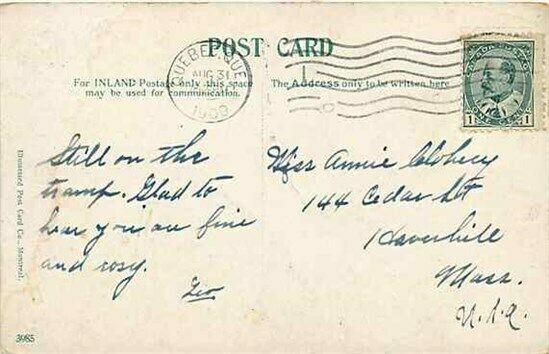 POST CARD
QUEBEC, QUE
AUG 31
For INLAND Postage only this space
may be used for communication.
The Address only to be written here
1
CENT
1
Still on the
tramp. Glad to
hear you are fine
and rosy.
Geo
Miss Annie Clohecy
144 Cedar St
Haverhill
Mass.
U.S.A.
Illustrated Post Card Co., Montreal.
3985